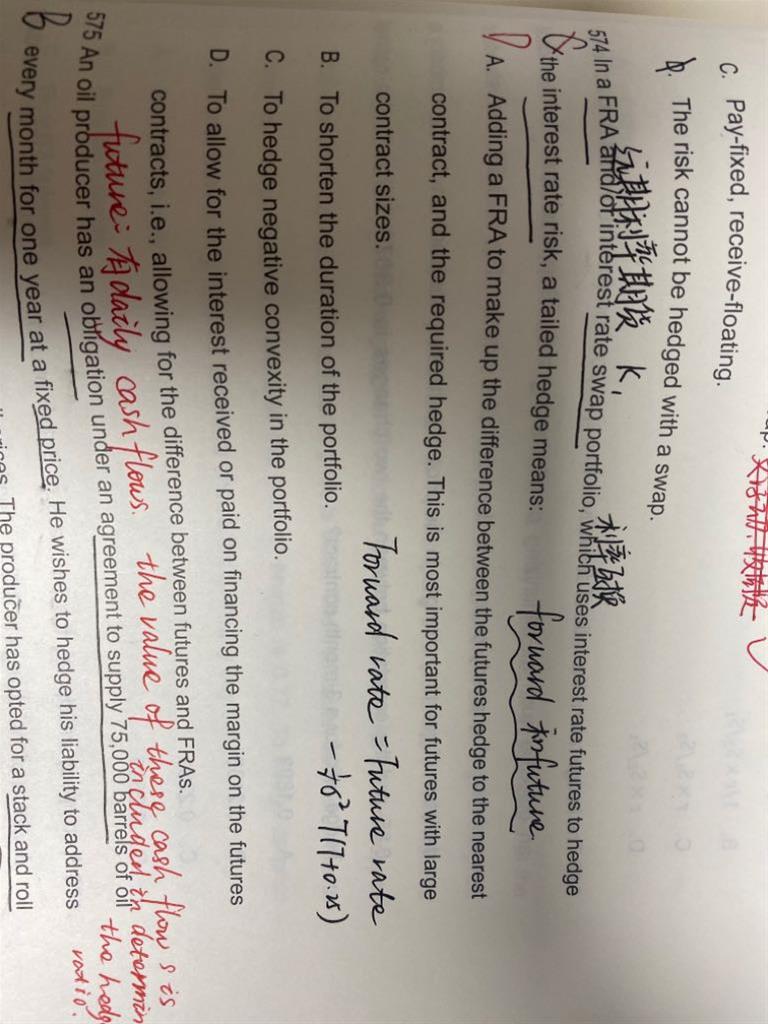 C. Pay-fixed, receive-floating.
D. The risk cannot be hedged with a swap.
远期利率期货 K, 利率互换
574 In a FRA and/or interest rate swap portfolio, which uses interest rate futures to hedge
the interest rate risk, a tailed hedge means:
forward 和future
D
A. Adding a FRA to make up the difference between the futures hedge to the nearest
contract, and the required hedge. This is most important for futures with large
contract sizes.
Forward rate = Future rate
B. To shorten the duration of the portfolio.
- ½σ²T(T+0.25)
C. To hedge negative convexity in the portfolio.
D. To allow for the interest received or paid on financing the margin on the futures
contracts, i.e., allowing for the difference between futures and FRAs.
future: 有daily cash flows. the value of these cash flows is
included in determin
the hedg
ratio.
575 An oil producer has an obligation under an agreement to supply 75,000 barrels of oil
B
every month for one year at a fixed price. He wishes to hedge his liability to address
The producer has opted for a stack and roll